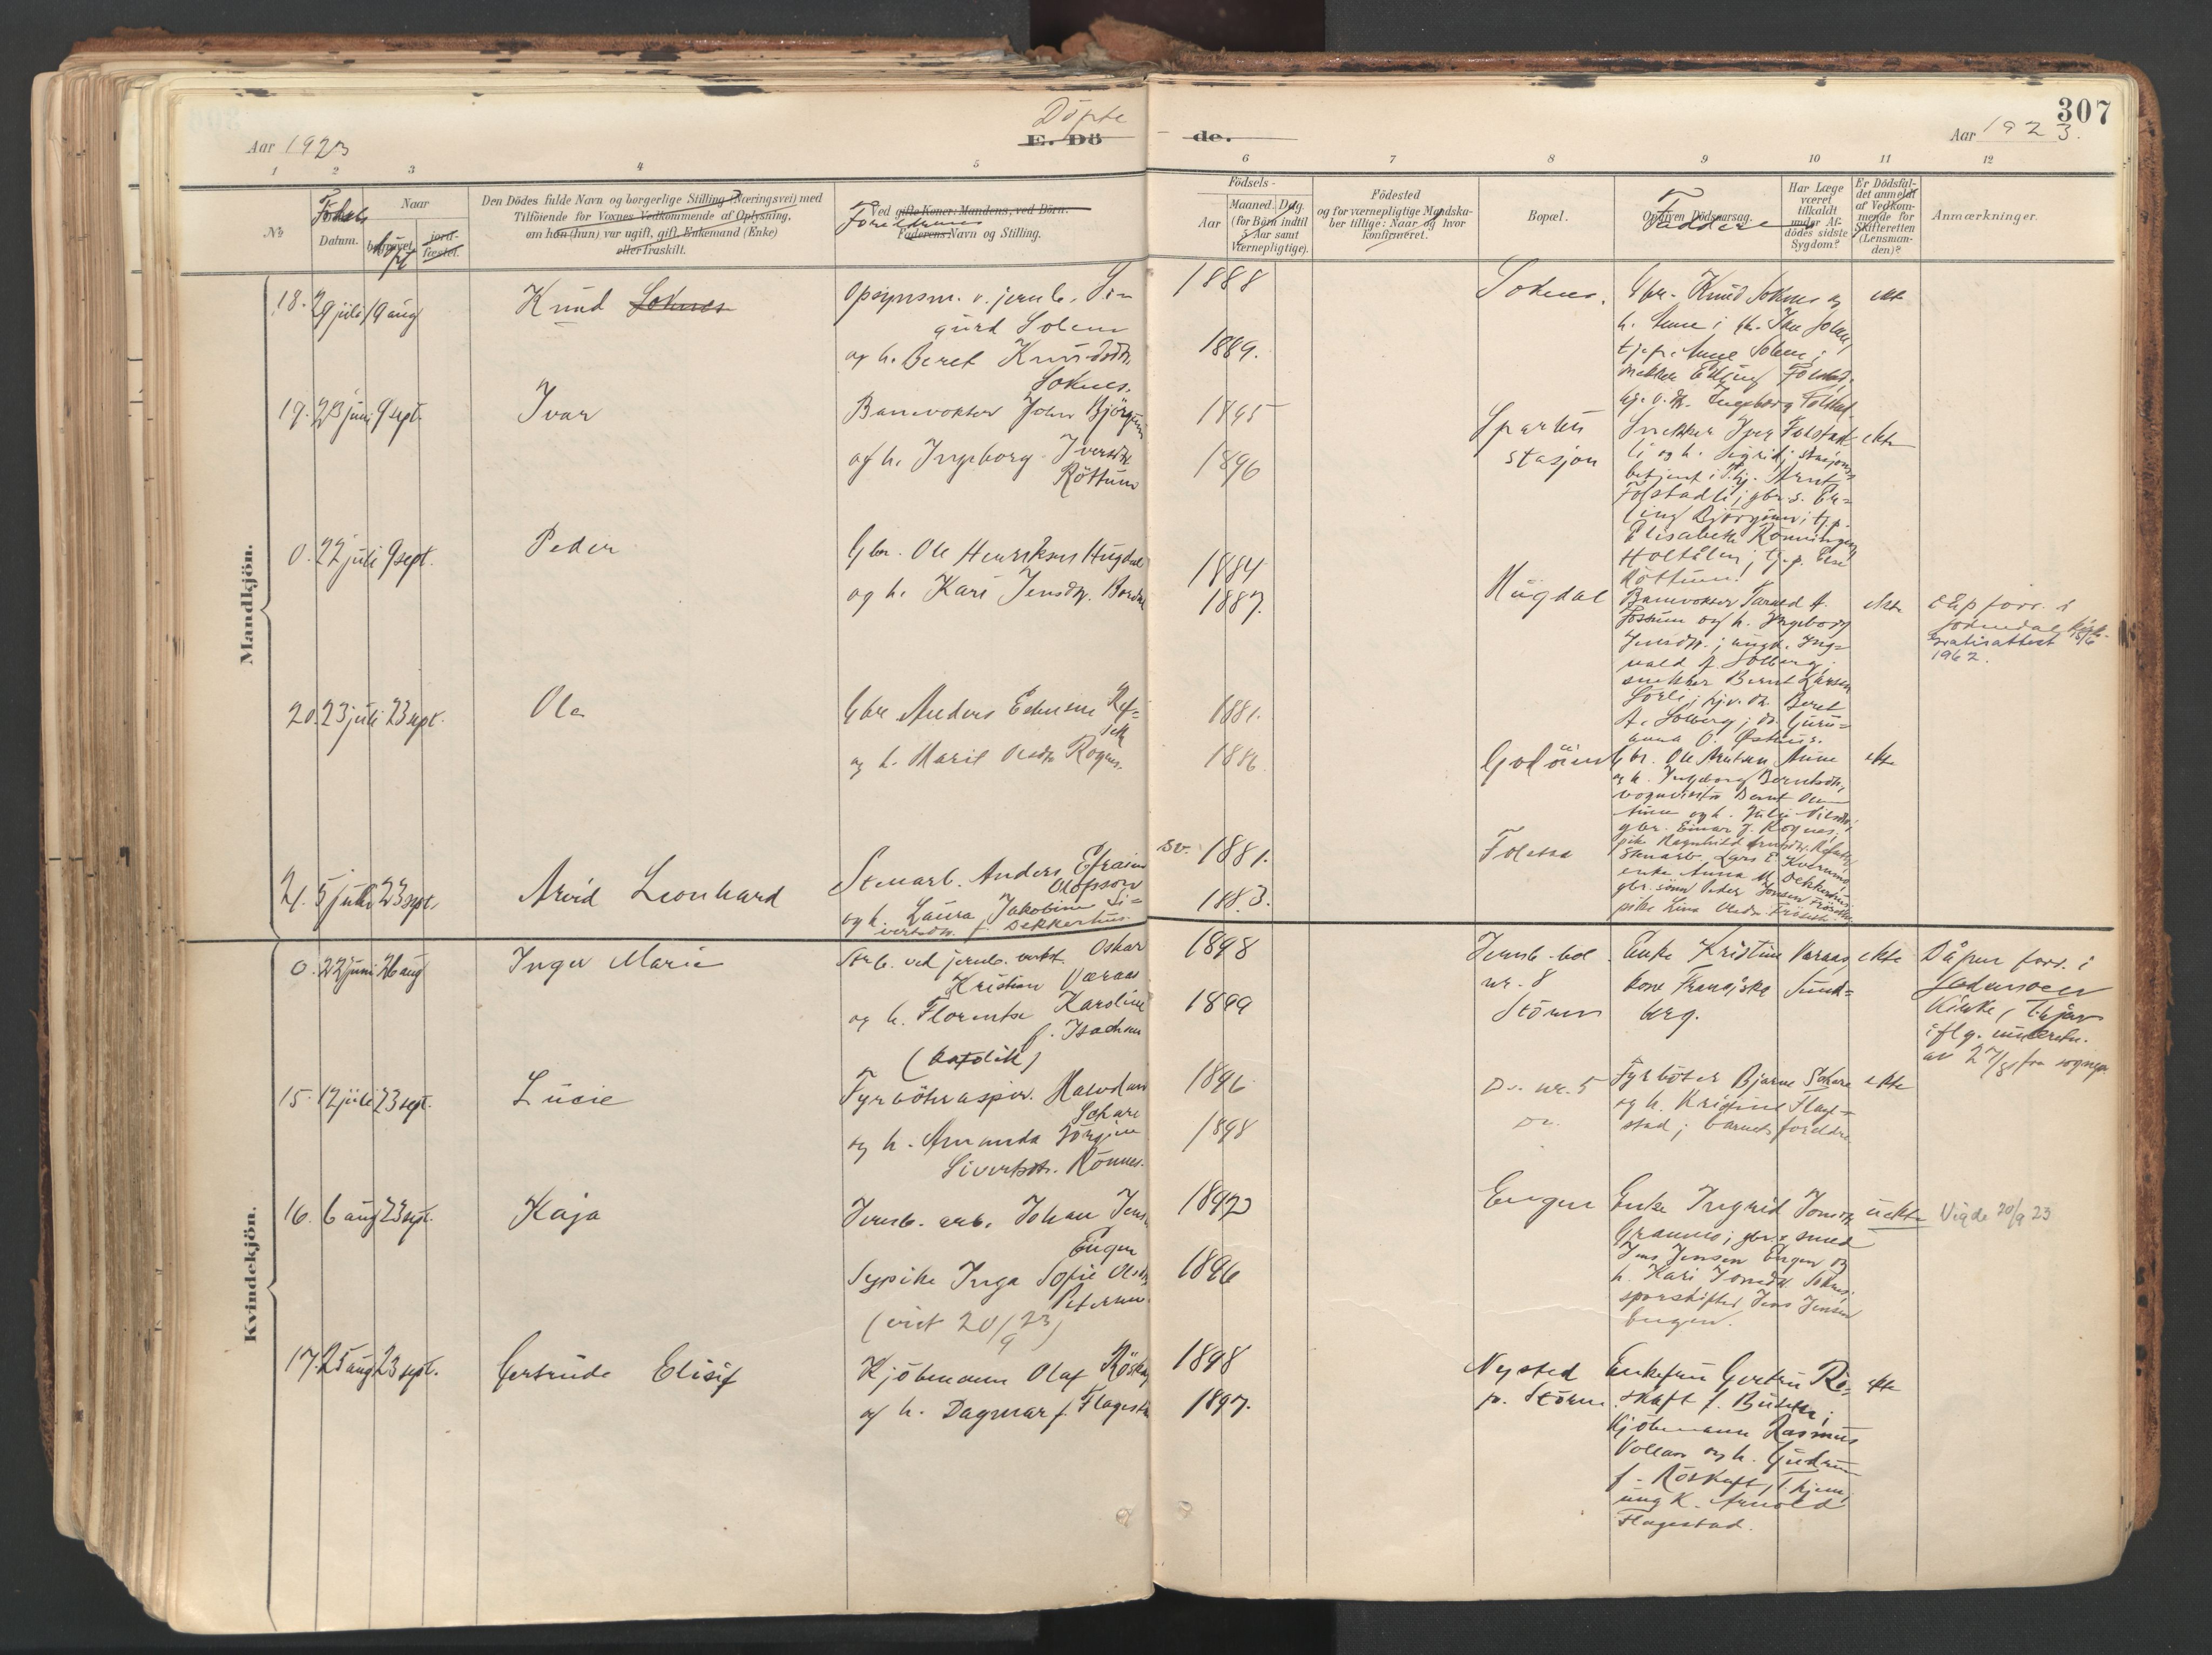 307
Döpte
Aar 1923
E. Dö
de.
Aar 1923.
1 2 3 4 5 6 7 8 9 10 11 12
№
Födsels
Datum.
Naar
begravet.
döpt
jord-
fæstet.
Den Dödes fulde Navn og borgerlige Stilling (Næringsvei) med
Tilföiende for Voxnes Vedkommende af Oplysning,
om han (hun) var ugift, gift, Enkemand (Enke)
eller fraskilt.
Ved gifte Koner: Mandens, ved Börn:
Foreldrenes
Faderens Navn og Stilling.
Födsels-
Aar
Maaned. Dag.
(for Börn indtil
5 Aar samt
Værnepligtige).
Födested
og for værnepligtige Mandska-
ber tillige: Naar og hvor
konfirmeret.
Bopæl.
Opgiven Dödsaarsag.
Faddere
Har Læge
været
tilkaldt
under Af-
dödes sidste
Sygdom?
Er Dödsfal-
det anmeldt
af Vedkom-
mende for
Skifteretten
(Lensman-
den)?
Anmærkninger.
Mandkjön.
18. 29 juli 19 aug
Knud Soknes
Opsynsm. v. jernb. Si-
gurd Solem
og h. Beret Knudsdtr.
Soknes.
1888
1889.
Soknes.
Gbr. Knud Soknes og
h. Anne
tj.p. Anne Solem;
ekte
19. 23 juni 9 sept.
Ivar
Banevokter John Björgum
og h. Ingeborg Iversdtr.
Röttum
1895
1896
Sparbu
stasjon
Snekker Iver Folstad-
li og h. Sigrid; stasjons-
betjent Arnt
Folstadli; gbr.s. Er-
ling Björgum; tj.p.
Elisabeth Rönningen
Holtålen; tj.p. Else
Röttum.
ekte
0. 22 juli 9 sept.
Peder
Gbr. Ole Henriksen Hugdal
og h. Kari Jensdtr. Bordal
1884
1887.
Hugdal
Banevokter
Fossum og h. Ingeborg
Jensdtr.; ungk. Ing-
vald A. Solberg;
snekker Bernt Larsen
Sörli; hj.v. d. Beret
A. Solberg; d. Guru-
anna O. Östhus.
ekte
forr. i
Gratisattest 15/6
1962.
20. 23 juli 23 sept.
Ole
Gbr Anders Estensen Ref-
set
og h. Marit Olsdtr Rognes.
1881.
1886.
Godöiens
Gbr. Ole Arntsen Aune
og h. Ingeborg Berntsdtr,
Bernt Olsen
Aune og h.
gbr. Einar J. Rognes;
pike Ragnhild
ekte
21. 5 juli 23 sept.
Arvid Leonhard
Stenarb. Anders Efraim
Olofsson
og h. Laura Jakobine Si-
vertsdtr. f. Dekkerhus.
sv. 1881.
1883.
Stenarb. Lars E. Kvernmo
enke Anna M. Dekkerhus
gbr. sönn Peder Jonsen Fröseth
pike Lina Olsdtr Fröseth.
Kvindekjön.
0. 22 juni 26 aug
Inger Marie
Arb. ved jernb. verkst. Oskar
Kristian Væraas
og h. Florentse Karoline
f. Isachsen
(katolik)
1898
1899
Jernb. bol.
nr. 8
Stören
Enke Kristine Væraas,
kone Fransiska Sund-
berg.
ekte
Dåpen forr. i
Lademoen
kirke, T.hjem
iflg. underretn.
av 27/8 fra sognepr.
15. 12 juli 23 sept.
Lucie
Fyrböteraspir. Halvdan
Schare
og h. Amanda Jörgine
Sivertsdtr. Rönnes.
1896
1898
Do. nr. 5
Do.
Fyrböter Bjarne Schare
og h. Kristine Flage-
stad; barnets foreldre
ekte
16. 6 aug 23 sept.
Kaja
Jernb. arb. Johan Jens.
Engen
Sypike Inga Sofie Olsdtr.
Petersen.
(viet 20/9 23)
1892
1896
Engen
Enke Ingrid Jonsdtr
Granmo; gbr. & smed
Jens Jensen Engen og
h. Kari Jonsdtr Soknes;
sporskifter Jens Jensen
Engen.
uekte
Vigde 20/9 23
17. 25 aug 23 sept.
Gertrude Elisif
Kjöbmann Olaf Röskaft
og h. Dagmar f. Flagestad
1898
1897.
Nysted
p. Stören
Enkefru Gertru Rö-
skaft f.
Kjöbmann Rasmus
Vollan og h. Gudrun
f. Röskaft, T.hjem;
ungk. Arnold
Flagestad.
ekte